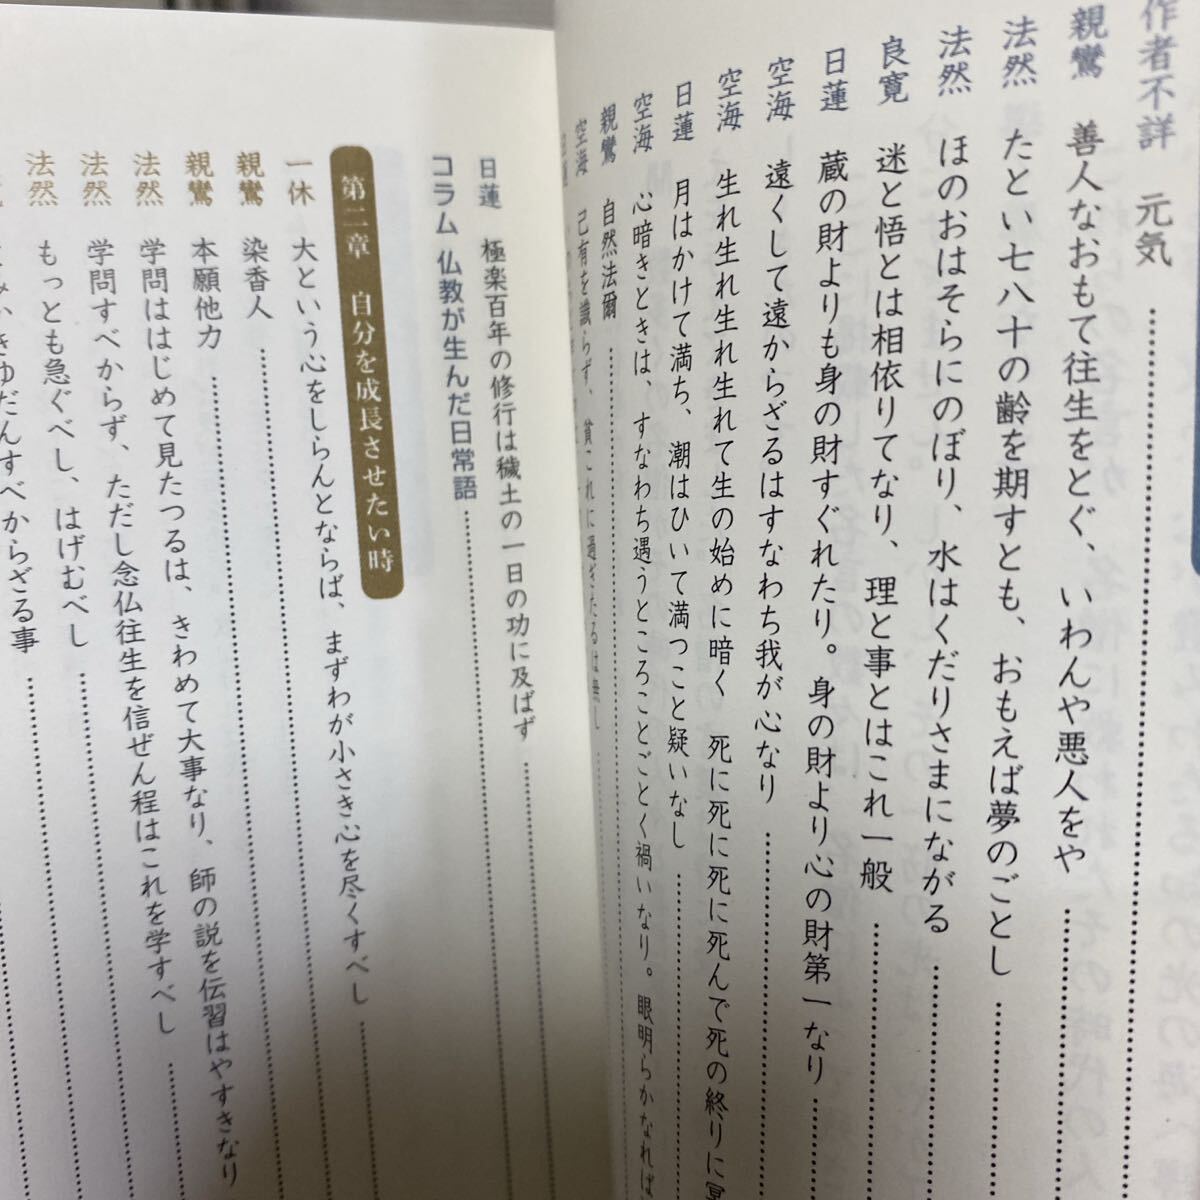 作者不詳 元気
親鸞 善人なおもて往生をとぐ、いわんや悪人をや
法然 たとい七八十の齢を期すとも、おもえば夢のごとし
法然 ほのおはそらにのぼり、水はくだりさまにながる
良寛 迷と悟とは相依りてなり、理と事とはこれ一般
日蓮 蔵の財よりも身の財すぐれたり。身の財より心の財第一なり
空海 遠くして遠からざるはすなわち我が心なり
空海 生れ生れ生れ生れて生の始めに暗く 死に死に死に死んで死の終りに冥
日蓮 月はかけて満ち、潮はひいて満つこと疑いなし
空海 心暗きときは、すなわち遇うところことごとく禍いなり。眼明らかなれば
親鸞 自然法爾
空海 己有を識らず、貧これに過ぎたるは無し
日蓮 極楽百年の修行は穢土の一日の功に及ばず
コラム 仏教が生んだ日常語
第二章 自分を成長させたい時
一休 大という心をしらんとならば、まずわが小さき心を尽くすべし
親鸞 染香人
親鸞 本願他力
法然 学問ははじめて見たつるは、きわめて大事なり、師の説を伝習はやすきなり
法然 学問すべからず、ただし念仏往生を信ぜん程はこれを学すべし
法然 もっとも急ぐべし、はげむべし
ゆだんすべからざる事